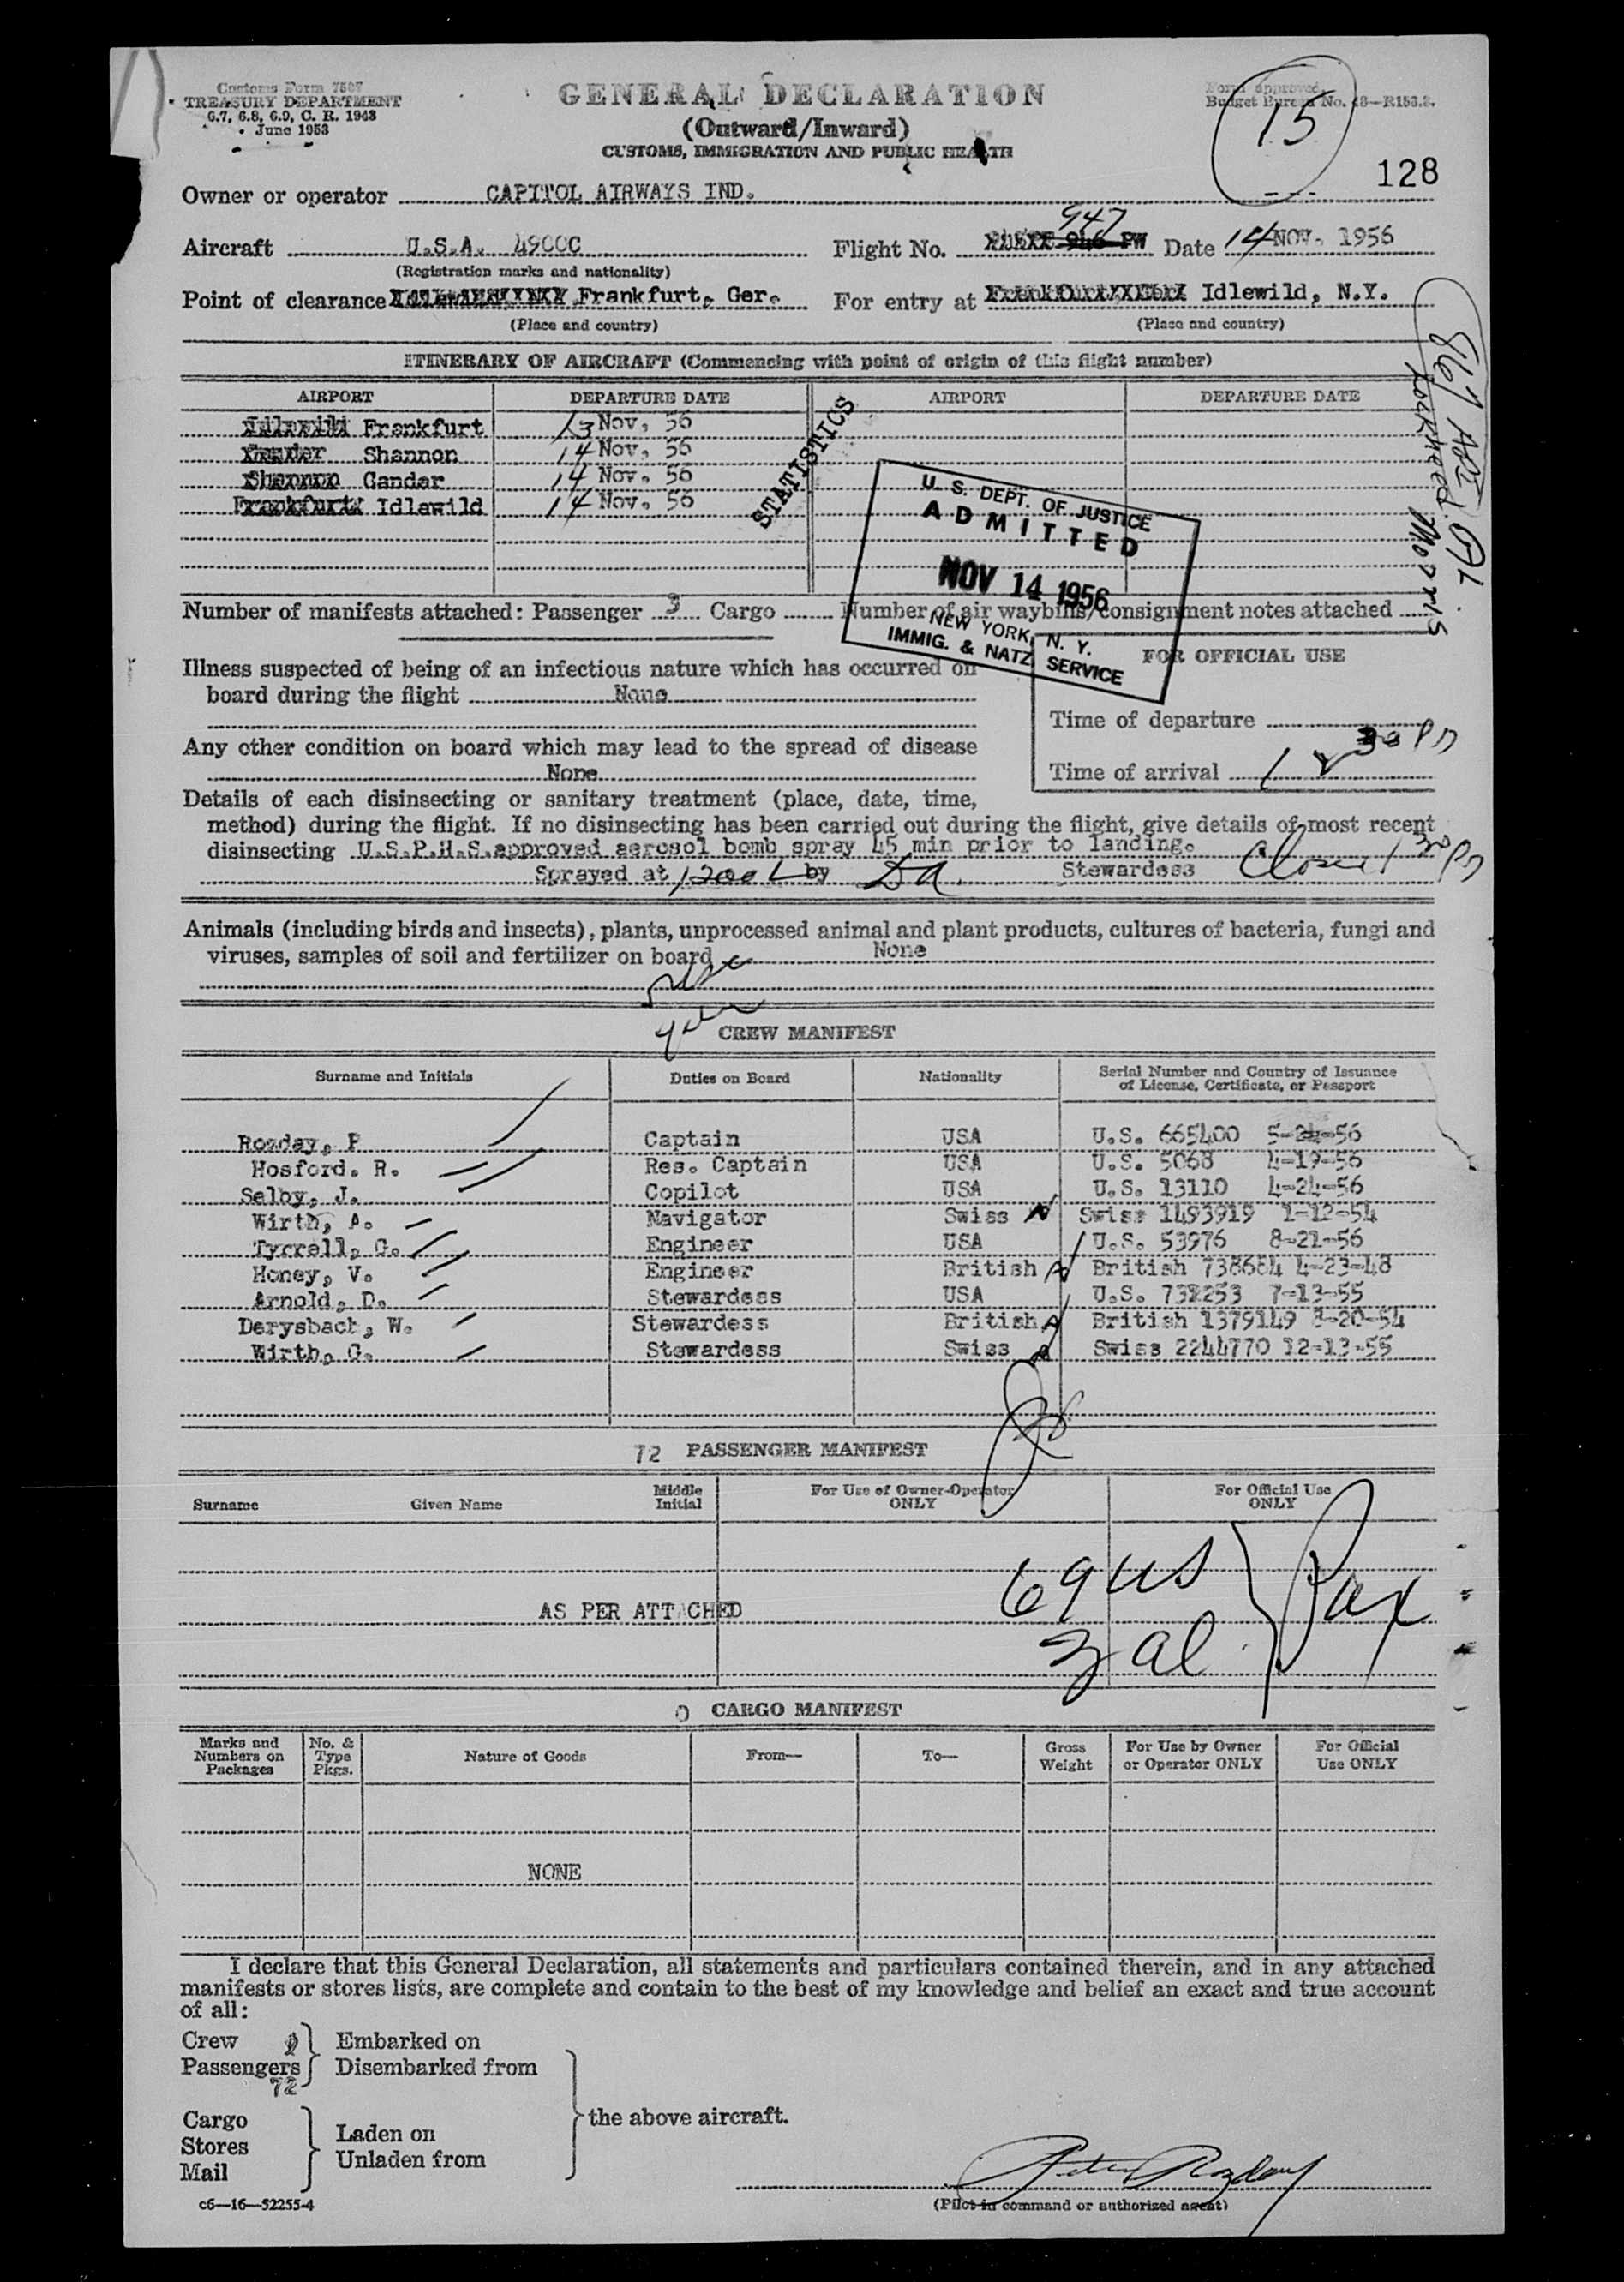 Customs Form 7507
TREASURY DEPARTMENT
6.7, 6.8, 6.9, C. R. 1943
June 1953
GENERAL DECLARATION
(Outward/Inward)
CUSTOMS, IMMIGRATION AND PUBLIC HEALTH
Form approved.
Budget Bureau No. 48—R153.2.
15
128
Owner or operator CAPITOL AIRWAYS IND.
Aircraft U.S.A. 4900C Flight No. 947 PW Date 14 NOV. 1956
(Registration marks and nationality)
Point of clearance Frankfurt, Ger. For entry at Idlewild, N.Y.
(Place and country) (Place and country)
ITINERARY OF AIRCRAFT (Commencing with point of origin of this flight number)
AIRPORT DEPARTURE DATE AIRPORT DEPARTURE DATE
Idlewild Frankfurt 13 Nov, 56
Gander Shannon 14 Nov. 56
Shannon Gander 14 Nov. 56
Frankfurt Idlewild 14 Nov. 56
STATISTICS
U. S. DEPT. OF JUSTICE
ADMITTED
NOV 14 1956
NEW YORK, N. Y.
IMMIG. & NATZ. SERVICE
Lockheed Morris
Number of manifests attached: Passenger 3 Cargo Number of air waybills/consignment notes attached
Illness suspected of being of an infectious nature which has occurred on
board during the flight None
Any other condition on board which may lead to the spread of disease
None
FOR OFFICIAL USE
Time of departure
Time of arrival 1 30 PM
Details of each disinsecting or sanitary treatment (place, date, time,
method) during the flight. If no disinsecting has been carried out during the flight, give details of most recent
disinsecting U.S.P.H.S. approved aerosol bomb spray 45 min prior to landing.
Sprayed at 1200 L by DA Stewardess
Animals (including birds and insects), plants, unprocessed animal and plant products, cultures of bacteria, fungi and
viruses, samples of soil and fertilizer on board None
CREW MANIFEST
Surname and Initials Duties on Board Nationality Serial Number and Country of Issuance
of License, Certificate, or Passport
Rozday, P Captain USA U.S. 665400 5-24-56
Hosford. R. Res. Captain USA U.S. 5068 4-19-56
Selby, J. Copilot USA U.S. 13110 4-24-56
Wirth, A. Navigator Swiss Swiss 1493919 1-12-54
Tyrrell, G. Engineer USA U.S. 53976 8-21-56
Honey, V. Engineer British British 738684 4-23-48
Arnold, D. Stewardess USA U.S. 732253 7-13-55
Derysbach, W. Stewardess British British 1379149 8-20-54
Wirth, G. Stewardess Swiss Swiss 2244770 12-13-55
72 PASSENGER MANIFEST
Surname Given Name Middle
Initial For Use of Owner-Operator
ONLY For Official Use
ONLY
69 US
3 al Pax
AS PER ATTACHED
0 CARGO MANIFEST
Marks and
Numbers on
Packages No. &
Type
Pkgs. Nature of Goods From— To— Gross
Weight For Use by Owner
or Operator ONLY For Official
Use ONLY
NONE
I declare that this General Declaration, all statements and particulars contained therein, and in any attached
manifests or stores lists, are complete and contain to the best of my knowledge and belief an exact and true account
of all:
Crew 9 Embarked on
Passengers Disembarked from
72
the above aircraft.
Cargo
Stores
Mail
Laden on
Unladen from
Peter Rozday
(Pilot in command or authorized agent)
c6—16—52255-4